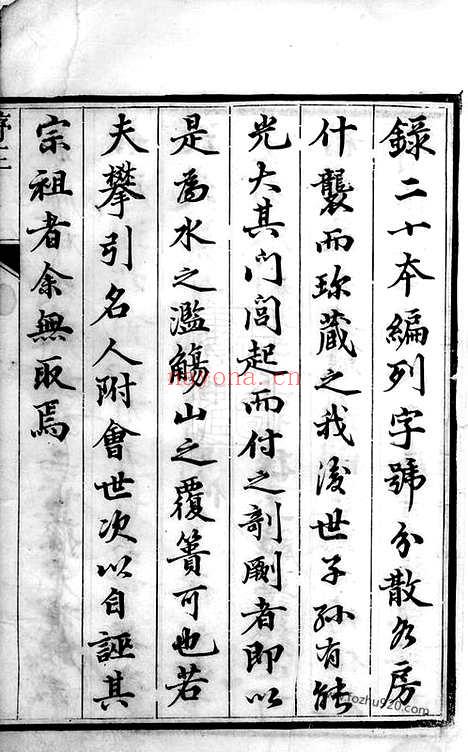 錄二十本編列字號分散各房
什襲而珎藏之我後世子孫有能
光大其門閭起而付之剞劂者即以
是為水之濫觴山之覆簣可也若
夫攀引名人附會世次以自誣其
宗祖者余無取焉
序二
nayona.cn
www.fozhu920.com